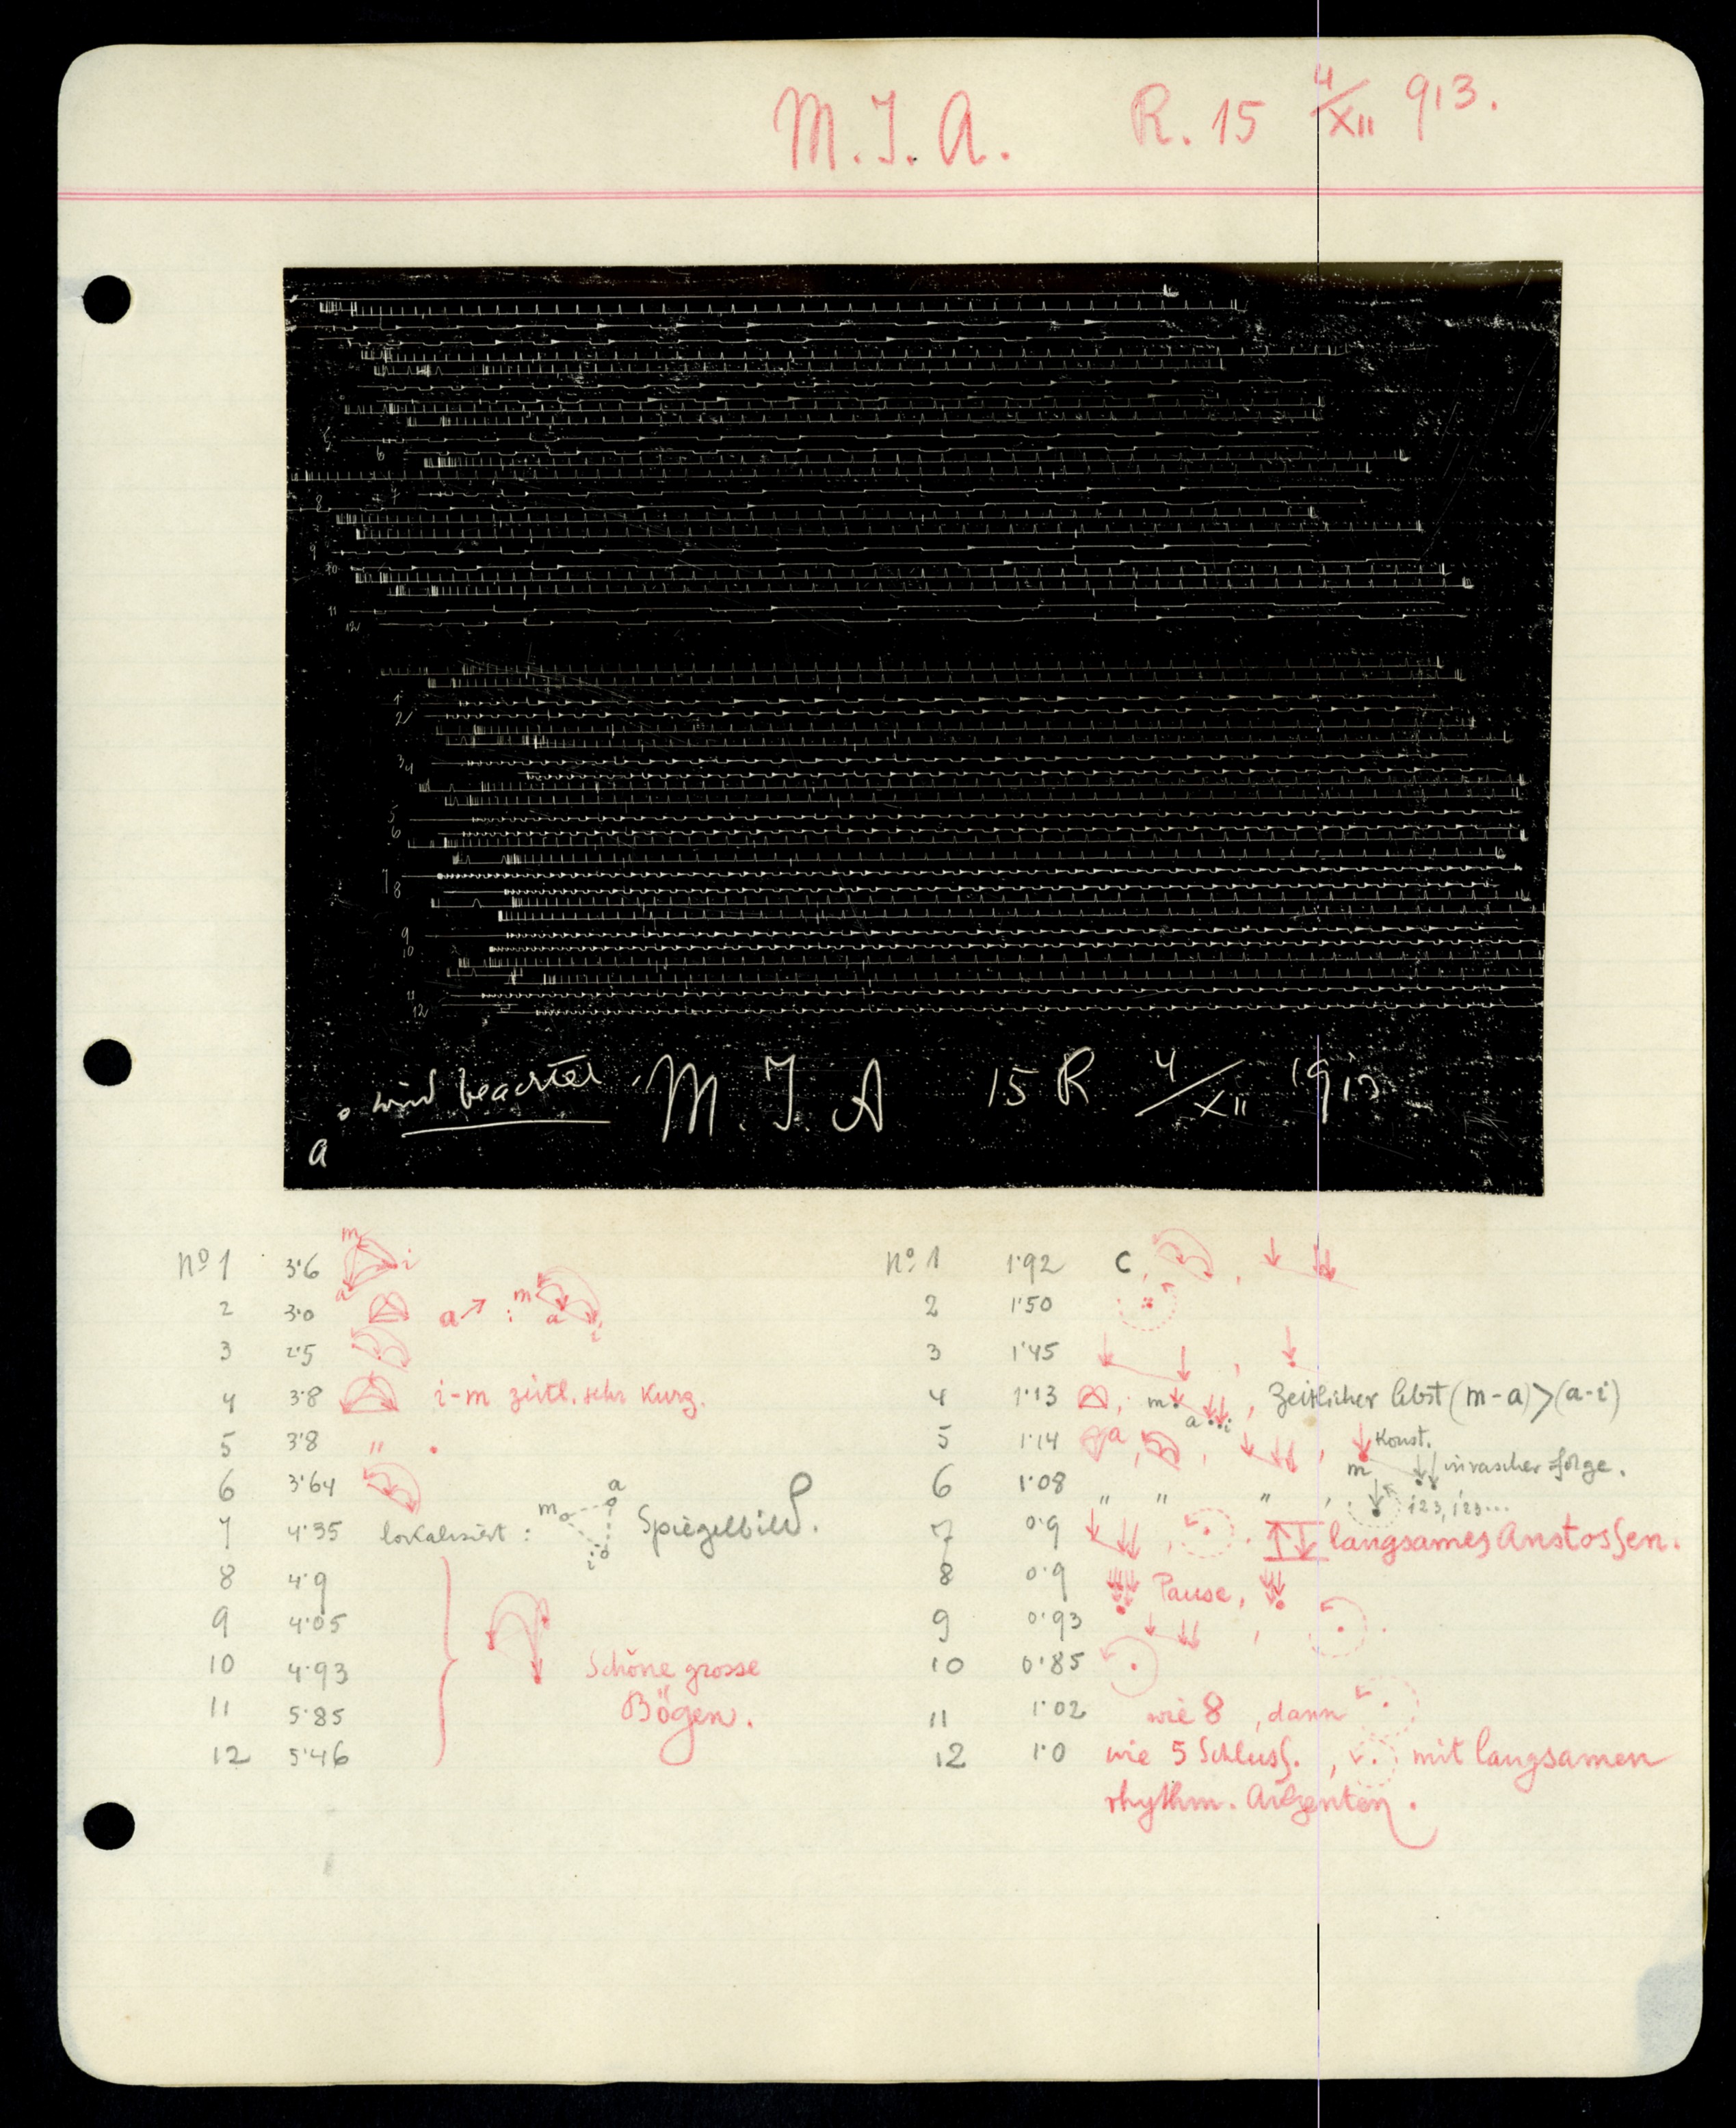 M. J. A. R. 15 4/XII 913.
8
9
10
11
12
1
2
3
4
5
6
7 8
9
10
11
12
wird beachtet. M. J. A 15 R 4/XII 1913
a
m
i
a
nº 1 3·6
2 3·0 a : m a i
3 2·5
4 3·8 i-m zeitl. sehr kurz.
5 3·8 "
6 3·64
7 4·35 lokalisiert : m a i Spiegelbild.
8 4·9
9 4·05
10 4·93 Schöne grosse
11 5·85 Bögen.
12 5·46
nº 1 1·92 C,
2 1·50
3 1·45 ,
4 1·13 , m a i, Zeitlicher Abst (m-a)>(a-i)
5 1·14 a, , , Konst.
6 1·08 " " " , m in rascher Folge.
i23, i23...
7 0·9 , . langsames Anstossen.
8 0·9 Pause,
9 0·93 , .
10 0·85
11 1·02 wie 8, dann
12 1·0 wie 5 Schluss. , mit langsamen
rhythm. Akzenten.